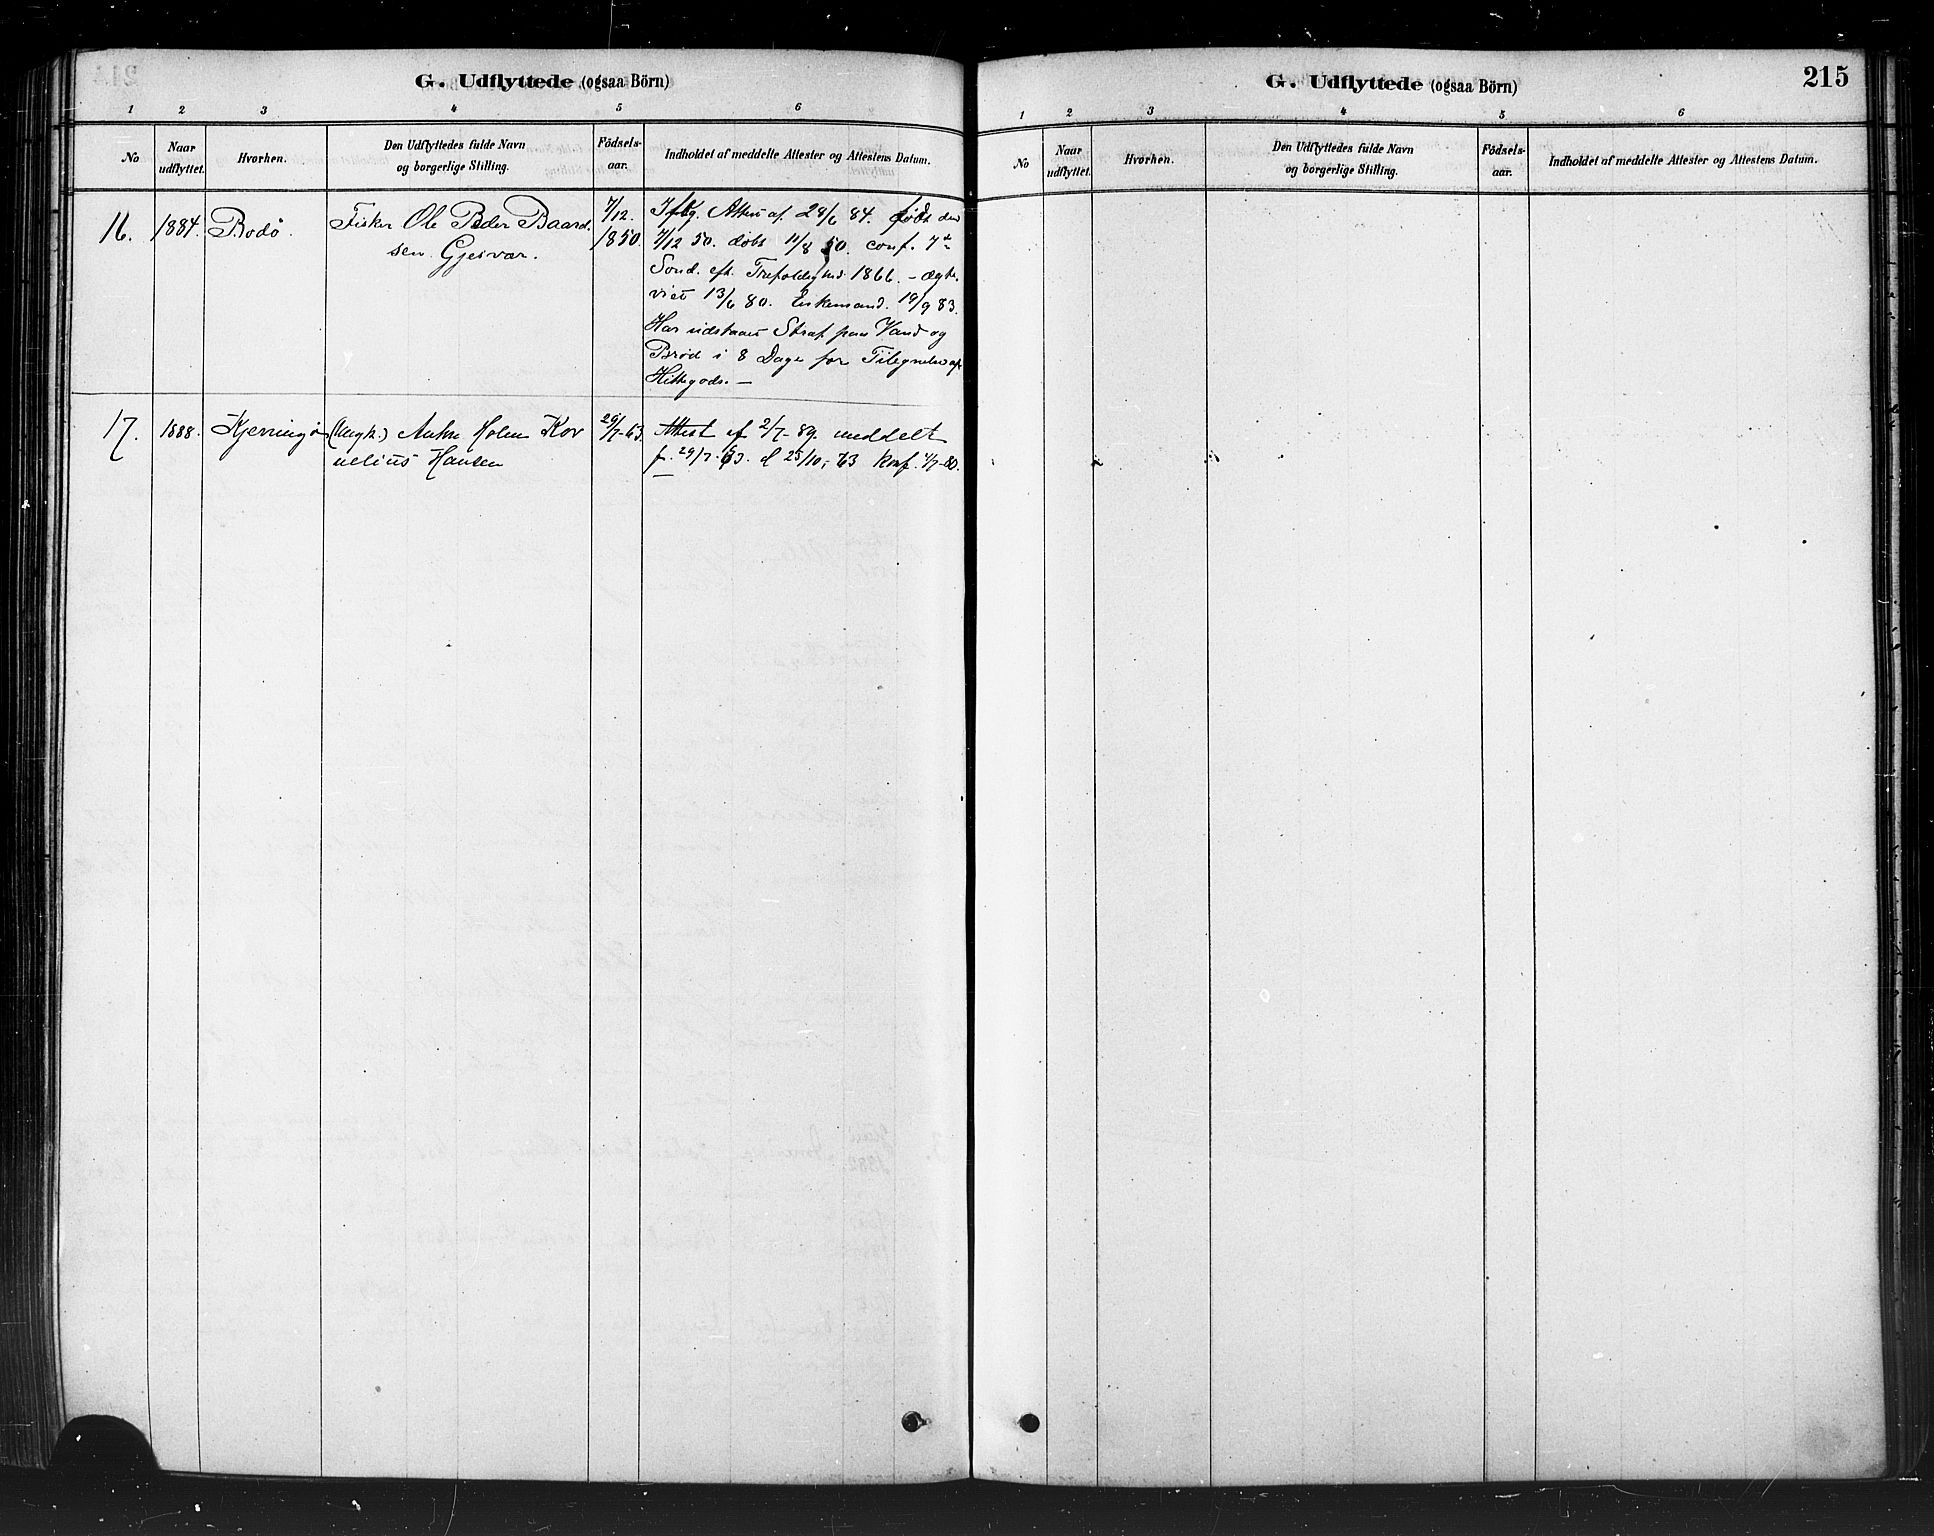 G. Udflyttede (ogsaa Börn)
1 2 3 4 5 6
No
Naar udflyttet.
Hvorhen.
Den Udflyttedes fulde Navn og borgerlige Stilling.
Födsels-aar.
Indholdet af meddelte Attester og Attestens Datum.
16. 1884. Bodö. Fisker Ole Peder Baard-
sen Gjesvar.
7/12. 1850.
Iflg. Attest af 28/6 84. født den
7/12 50. døbt 11/8 50. conf. 7de
Sønd. eft. Trefoldighed 1866. – ægte-
viet 13/6 80. Enkemand 19/9 83.
Har udstaaet Straf paa Vand og
Brød i 8 Dage for Tilegnelse af
Hittegods. –
17. 1888. Kjerringø (Ungk.) Holm Kor
nelius Hansen
29/7-63.
Attest af 2/7-89. meddelt
f. 29/7-63. d 25/10,-63 Konf. 4/7-80.
G. Udflyttede (ogsaa Börn)
215
1 2 3 4 5 6
No
Naar udflyttet.
Hvorhen.
Den Udflyttedes fulde Navn og borgerlige Stilling.
Födsels-aar.
Indholdet af meddelte Attester og Attestens Datum.